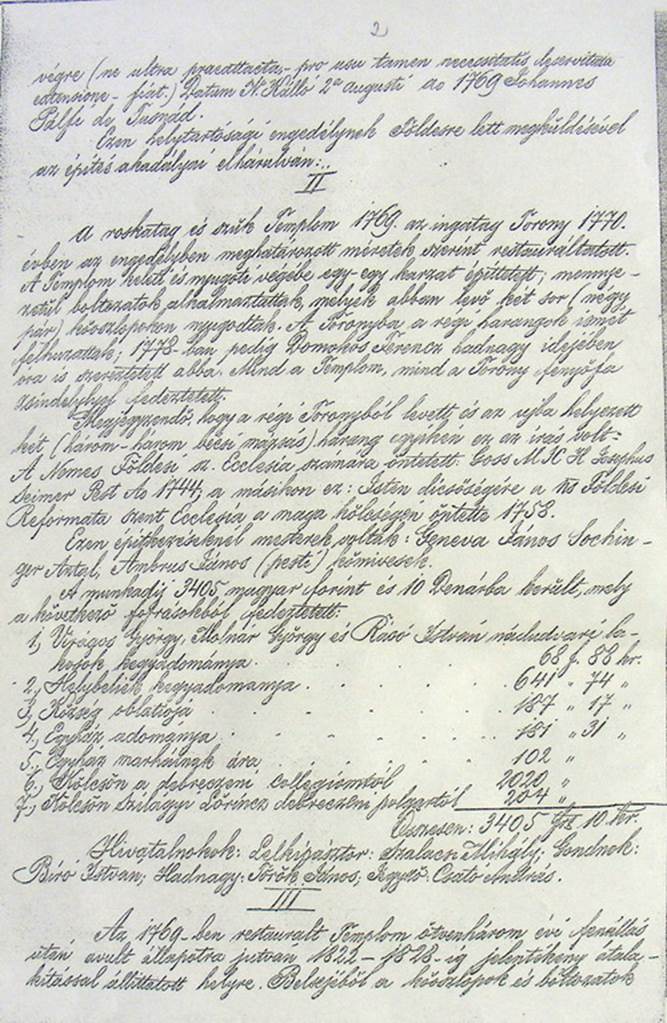 2
végre (ne ultra praeattacta - pro usu tamen necessitatis deservitura
extensione - fiat.) Datum N. Kálló 2a augusti ao 1769 Johannes
Pálfi de Tusnád.
Ezen helytartósági engedélynek Földesre lett megküldésével
az építés akadályai elhárulván:..
II
A roskatag és szük Templom 1769. az ingatag Torony 1770.
évben az engedélyben meghatározott méretek szerént restauráltatott.
A Templom keleti és nyugoti végébe egy-egy karzat építtetett; mennye-
zetül boltozatok alkalmaztattak, melyek abban levő két sor (négy
pár) kőoszlopokon nyugodtak. A Toronyba a régi harangok ismét
felhuzattak; 1778-ban pedig Domokos Ferencz hadnagy idejében
óra is szereztetett abba. Mind a Templom, mind a Torony fenyőfa
zsindelylyel fedeztetett.
Megjegyzendő, hogy a régi Toronyból levett és az ujba helyezett
két (három-három bécsi mázsás) harang egyikén ez az írás volt:
A Nemes Földesi sz. Ecclesia számára öntetett: Goss M. X. H. Josephus
Seimer Pest Ao 1744; a másikon ez: Isten dicsőségére a Földesi
Reformata szent Ecclesia a maga költségen öntette 1758.
Ezen építkezéseknél mesterek voltak: Geneva János Sochin-
ger Antal, Ambrus János (pesti) kőmivesek.
A munkadíj 3405 magyar forint és 10 Denárba került, mely
a következő forrásokból fedeztetett:
1, Virágos György, Molnár György és Rásó István nádudvari la-
kosok kegyadománya . 68 f. 88 kr.
2., Helybeliek kegyadománya . . . . 641 " 74 "
3, Község oblatiója . . . . . 187 " 17 "
4., Egyház adománya . . . . . 181 " 31 "
5., Egyház marháinak ára . . . . 102 "
6., Kölcsön a debreczeni collegiumtól 2020 "
7., Kölcsön Szilágyi Lőrincz debreczeni polgártól 204 "
Összesen: 3405 frt 10 kr.
Hivatalnokok: Lelkipásztor: Szalacsi Mihály; Gondnok:
Bíró István; Hadnagy: Török János; Jegyző: Csató András.
III
Az 1769-ben restaurált Templom ötvenhárom évi fenállás
után avult állapotra jutván 1822-1828-ig jelentékeny átala-
kítással állíttatott helyre. Belsejéből a kőoszlopok és boltozatok